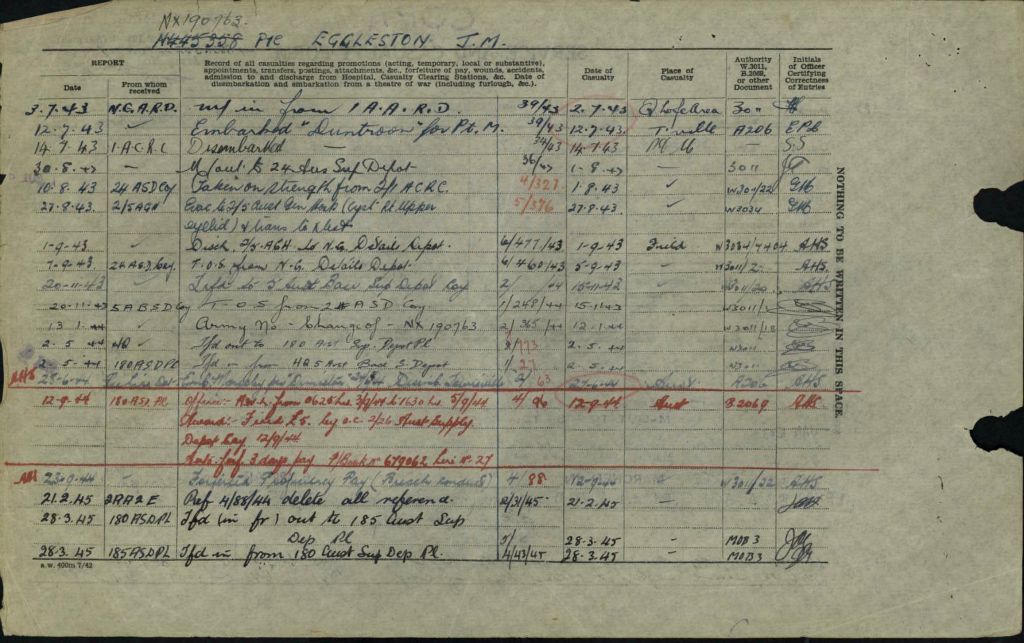 NX190763.
N445358 Pte EGGLESTON J.M.
REPORT
Date
From whom received
Record of all casualties regarding promotions (acting, temporary, local or substantive),
appointments, transfers, postings, attachments, &c., forfeiture of pay, wounds, accidents,
admission to and discharge from Hospital, Casualty Clearing Stations, &c. Date of
disembarkation and embarkation from a theatre of war (including furlough, &c.).
Date of Casualty
Place of Casualty
Authority W.3011, B.2069, or other Document
Initials of Officer Certifying Correctness of Entries
3.7.43 N.G.A.R.D. m/in from 1 A.A.R.D. 39/43 2.7.43 Area 3011
12.7.43 Embarked "Duntroon" for Pt. M. 39/43 12.7.43 T'ville A206
14.7.43 1.A.C.R.C Disembarked — 14.7.43
30.8.43 M/out to 24 Aus Sup Depot 36/43 1-8-43 3011
10.8.43 24 ASD Coy Taken on strength from ACRC. 4/327 1.8.43
27.8.43 2/5 AGH Evac to 2/5 Aust Gen Hosp (Cyst Rt Upper 5/376 27.8.43 W3034
eyelid) & trans to
1-9-43 Disch 2/5 AGH to N.G. Details Depot. 6/477/43 1-9-43 Field AHS.
7-9-43 24 A.S.D. Coy. T.O.S. from N.G. Details Depot. 6/460/43 5-9-43 AHS.
20-11-43 Trfd to 5 Aust Base Sup Depot Coy 2/ AHS
20-11-43 5 ABSD Coy T.O.S from 24 ASD Coy 1/248/44 15-11-43
13.1.44 Army No - Change of - NX 190763 2/365/44 12.1.44
2.5.44 HQ Tfd out to 180 Aust Sup. Depot Pl 2.5.44 W3011
2.5.44 180 ASD PL Tfd in from HQ 5 Aust Base S. Depot 1/27 2.5.44 W3011
AHS 23-6-44 2/ 63 27-6-44 A206 AHS
12-9-44 180 ASD. Pl. Offence:- A.W.L. from 0625 hrs 3/9/44 to 1630 hrs 5/9/44 4/96 12-9-44 Aust B2069 AHS
Award:- Fined £5. by O.C. 2/26 Aust Supply
Depot Coy 12/9/44
Auto. forf. 3 days pay 679062 No. 27
23-9-44 Forfeited Proficiency Pay (Breach conduct) 4/88 W3011/22 AHS
21.2.45 2RR2E Ref 4/88/44 delete all reference. 2/31/45 21.2.45 —
28.3.45 180 ASDPL Tfd (in fr) out to 185 Aust Sup
Dep Pl. 5/ 28.3.45 — MOB 3
28.3.45 185 ASDPL Tfd in from 180 Aust Sup Dep Pl. 4/43/45 28.3.45 — MOB3
a.w. 400m 7/42
NOTHING TO BE WRITTEN IN THIS SPACE.